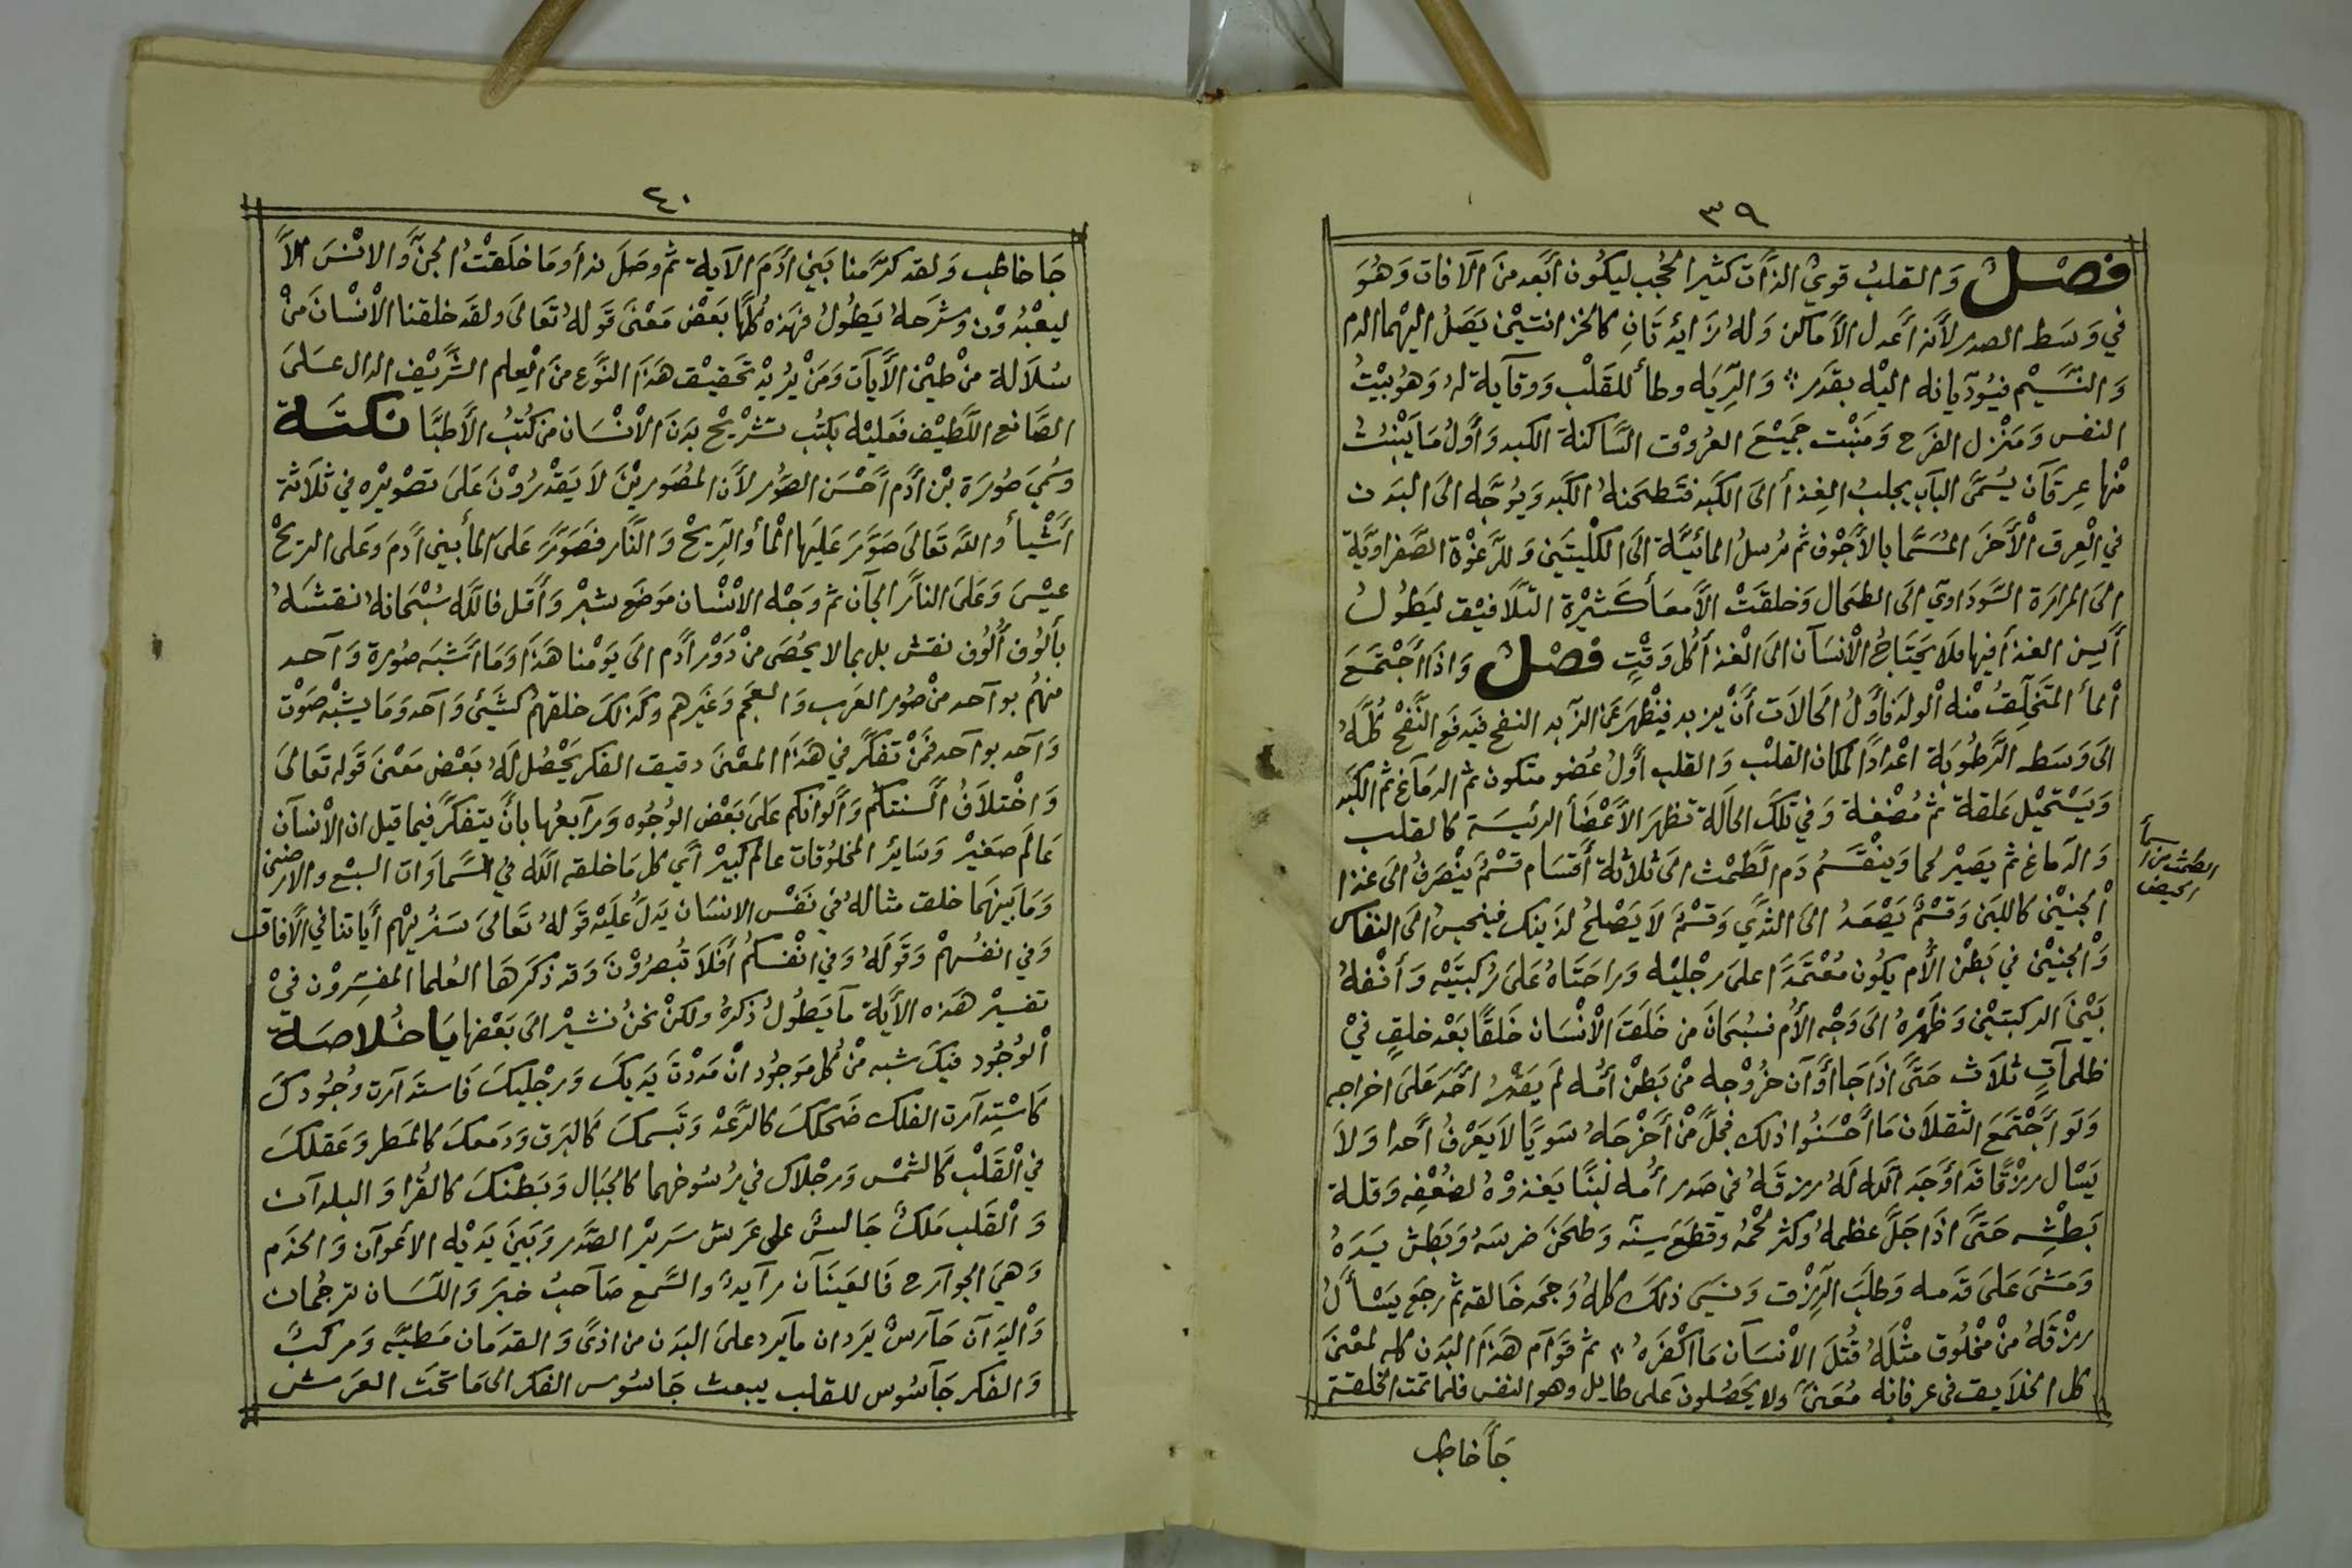 ٣٩
فصْلٌ وَالقلبُ قويُ الذَّات كثير الحُجُب ليكُون أبَعد منَ الآفات وَهُوَ
في وَسَط الصدر لأنه أعدل الأماكن وَلهُ زَائِدَتَانِ كالخزانتَيْن يَصَلُ اليْهما الدم
وَالنَّسَيْم فيُودّيانه اليْه بقدَر وَالرِّيَه وطأ للقَلْب ووقآية لهُ وَهوُ بيْتُ
النفس وَمَنْزل الفَرَح وَمَنبْت جَميْعَ العرُوْق السَّاكنة الكبد وَأوَّلُ مَا يَنْبُتُ
مْنها عِرقَان يُسَمَّى البآب يجلبُ الغِذأ الىَ الكَبَد فتَطحَنهُ الكَبَد وَيوُجّه الىَ البَدَن
في الْعِرق الأخَرَ المُسَمَّا بالأجَوْف ثم نرسلُ المائيَّة الىَ الكلْيتَيَن وَللرَّغوْة الصَّفراويَّة
الىَ المرارَة السَّودَاويّ الىَ الطحَال وَخلقَتْ الأمعَأ كَثيْرة التلاَفيْف ليَطُولُ
أيسِن الغذأ فيها فلاَ يَحتَاجُ الأنْسَآن الىَ الْغذأ كُل وَقْتٍ فصْلٌ وَاذَا اجْتمَعَ
الْمأ المتَخَلّقُ منْهُ الولَد فأوَّلُ الحَالات أنْ يزبد فينْظهرَ عَن الزّبد النفح فيَدفَع النَّفْح كُلَّهُ
الىَ وَسَط الرَّطُوبَة اعْدادًا لمكان القلبْ وَالقلب أوَّلُ عُضو متكون ثم الدمَآغ ثم الكَبَد
وَيَسْتَحيْل عَلقة ثم مُضْغة وَفي تلكَ الحالَة تظهَر الأعْضَأ الرئيسَة كالقلب
وَالدّماغ ثم يَصيْر لحما وَينْقسَمُ دَم الطَّمْث الىَ ثلاثة أقسَام قسْمٌ يَنْصَرفُ الىَ غذا
الْجَنيْن كاللبَن وَقسْمٌ يَصْعَدُ الىَ الثدَي وَقسْمٌ لاَ يَصْلحُ لذَينك فينحبسُ الىَ النفاس
وَالْجَنيْن في بَطْن الأُم يكُون مُعْتَمَدًا علىَ رجْليْه وَراحَتَاهُ عَلىَ رُكبتَيْه وَأنْفهُ
بَيْنَ الركبتيْن وَظَهْرهُ الىَ وَجْه الأُم فسُبحَانَ من خَلَقَ الأنْسَان خَلقًا بَعْد خلقٍ فيْ
ظلماتٍ ثلاث حَتَّى اذَا جَا أوَآن خرُوْجه منْ بَطْن أمّه لَم يَقدْرُ أحَدَ عَلىَ اخراجه
وَلَو اجْتَمَعَ الثقلاَن مَا أحْسَنُوا ذلك فجَلَّ منْ أخْرجَهُ سَويًّا لاَ يَعْرفُ أحَدا وَلاَ
يَسْال رزْقًا قدَ أوَجَد الله لَهُ رزقَهُ في صَدر أُمه لبَنًا يَغذوْهُ لضُعْفِه وَقلة
بَطْشِه حَتَّى اذَا جَلَّ عظمهُ وَكثر لحْمُهُ وقطَعَ سِنّه وَطحَنَ ضرسهُ وَبَطش بيَدَهُ
وَمَشَى عَلىَ قدَمه وَطلَبَ الرِزْق وَنسَي ذلكَ كلهُ وَجَحَد خَالقه ثم رجَع يَسْألُ
رزْقَهُ منْ مْخلُوق مثْلَهُ قُتلَ الأنْسَآن مَا اكْفَرَهُ ثم قوَآم هَذَا البَدَن كله لمعْنىَ
كل الخلاَيق في عرفانه مُعَنىً ولا يَحَصُلون عَلى طايل وهو النفس فلما تمت الخلقة
جَأ خاطب
الطمث من اسما
الحيض
٤٠
جَا خاطب وَلقد كرّمنا بَني أدَمَ الآية ثم وصَلَ ندأ وَمَا خلَقْتُ الجنَّ وَالانْسَ الاَّ
ليعْبُدوْن وَشرَحهُ يَطُولُ فهَذه كُلهَّا بَعْض مَعْنَى قَولهُ تَعَالىَ وَلقَد خلقنا الأنْسَانَ منْ
سُلاَلة من طيْن الأيَآت وَمَنْ يرُيدْ تحَقيْق هَذَا النَّوْع منَ الْعِلم الشَّريْف الدال عَلىَ
الصَّانع اللَّطيْف فعَليْه بكتُب تشْريْح بدَنَ الأنْسَان من كُتبُ الأطبَّا نكتَة
وَسُميَ صُورَة بْن أدَم أحْسَن الصوَر لأنَ المصُوريْنَ لاَ يَقْدرُوْنَ عَلىَ تصْويْره في ثلاَثة
أشْيأ وَاللهَ تعَالىَ صَوَّرَ عَليَها الْمأ وَالرِيحْ وَالنَّار فصَوَّرَ عَلىَ المأ بني أدَم وَعَلى الريحْ
عيْسَى وَعَلىَ النَّار الجآن ثم وَجْه الأنْسَان مَوضَع شبرْ وَأقل فالله سُبْحَانهُ نقشَهُ
بألُوْف أُلُوْف نقش بل بما لا يُحصَى منْ دَوْر أدَم الىَ يَوْمنا هَذَا وَمَا اشَبَه صُورة وَآحد
منهُم بوآحد منْ صُور العَرَب وَالعجَم وَغيَرهم وكذَلكَ خلقهُم كشَيئ وَآحد وَمَا يشبْه صَوْت
وَآحد بوآحد فمَنْ تفكَّر في هَذَا المعْنىَ دقيق الفكر يَحْصُل لَهُ بَعْض مَعْنىَ قَوله تعَالىَ
وَاخْتلاَفُ ألسنتكُم وَألوانكم عَلىَ بَعْض الوُجُوه وَرآبعُها بأنَّ يتفكرًّ فيما قيل ان الأنْسآن
عَالَم صَغيْر وَسَائِر المخلُوقات عالم كبيرْ أي كل مَا خلقه الله فيْ السَّماوَات السبْع والارضين
وَمَا بَينهَما خلق مثالهُ في نَفْس الانسَان يَدَلُّ عَليْه قَولهُ تعَالىَ سَنُريْهم أيَاتنا في الأفاق
وَفي انفُسهمْ وَقَولَهُ وَفي انْفْسكُم أفَلاَ تُبصرُوْنَ وَقد ذكرَهَا العُلما المفسِّروْن فيْ
تفسيْر هَذه الأيَة مآ يَطُولُ ذكرهُ ولكنْ نحنُ نشيْر الىَ بَعْضها يَا خُلاصَة
الْوُجُود فيكَ شبه منْ كُل مَوجُود انْ مَدْدتَ يَدَيكَ وَرجْليكَ فاستَدآرت وُجُودكَ
كاَسْتِدآرة الفلك ضَحكَكَ كالرَّعَدْ وَتَبسمكَ كالبَرق وَدمَعكَ كالمَطر وَعَقلكَ
في الْقَلْب كَالشمْس وَرجْلاكَ في رسُوخهما كالجبَال وَبَطنكَ كالقُرَا وَالبلدَآن
وَالْقَلب مَلكٌ جَالسٌ على عَرش سَريْر الصَّدَر وَبَينَ يَدَيْه الأعَوآن وَالخدَم
وَهيَ الجوآرح فَالعَينَآن رآيدٌ وَالسَّمع صَآحبُ خبرَ وَاللسَان ترجُمان
وَالْيدَآن حَآرسٌ يَردان مآ يَردْ علىَ البَدَن من اذىً وَالقدَمان مَطيّه وَمركبٌ
وَالفكر جَآسُوس للقلب يبعث جَاسُوس الفكر الىَ مَا تحَتَ العرَش